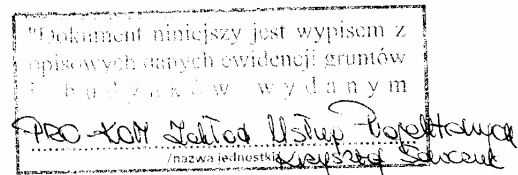 "Dokument niniejszy jest wypisem z
opisowych danych ewidencji gruntów
i budynków wydanym
PRO-KOM Zakład Usług Projektowych
/nazwa jednostki
Krzysztof